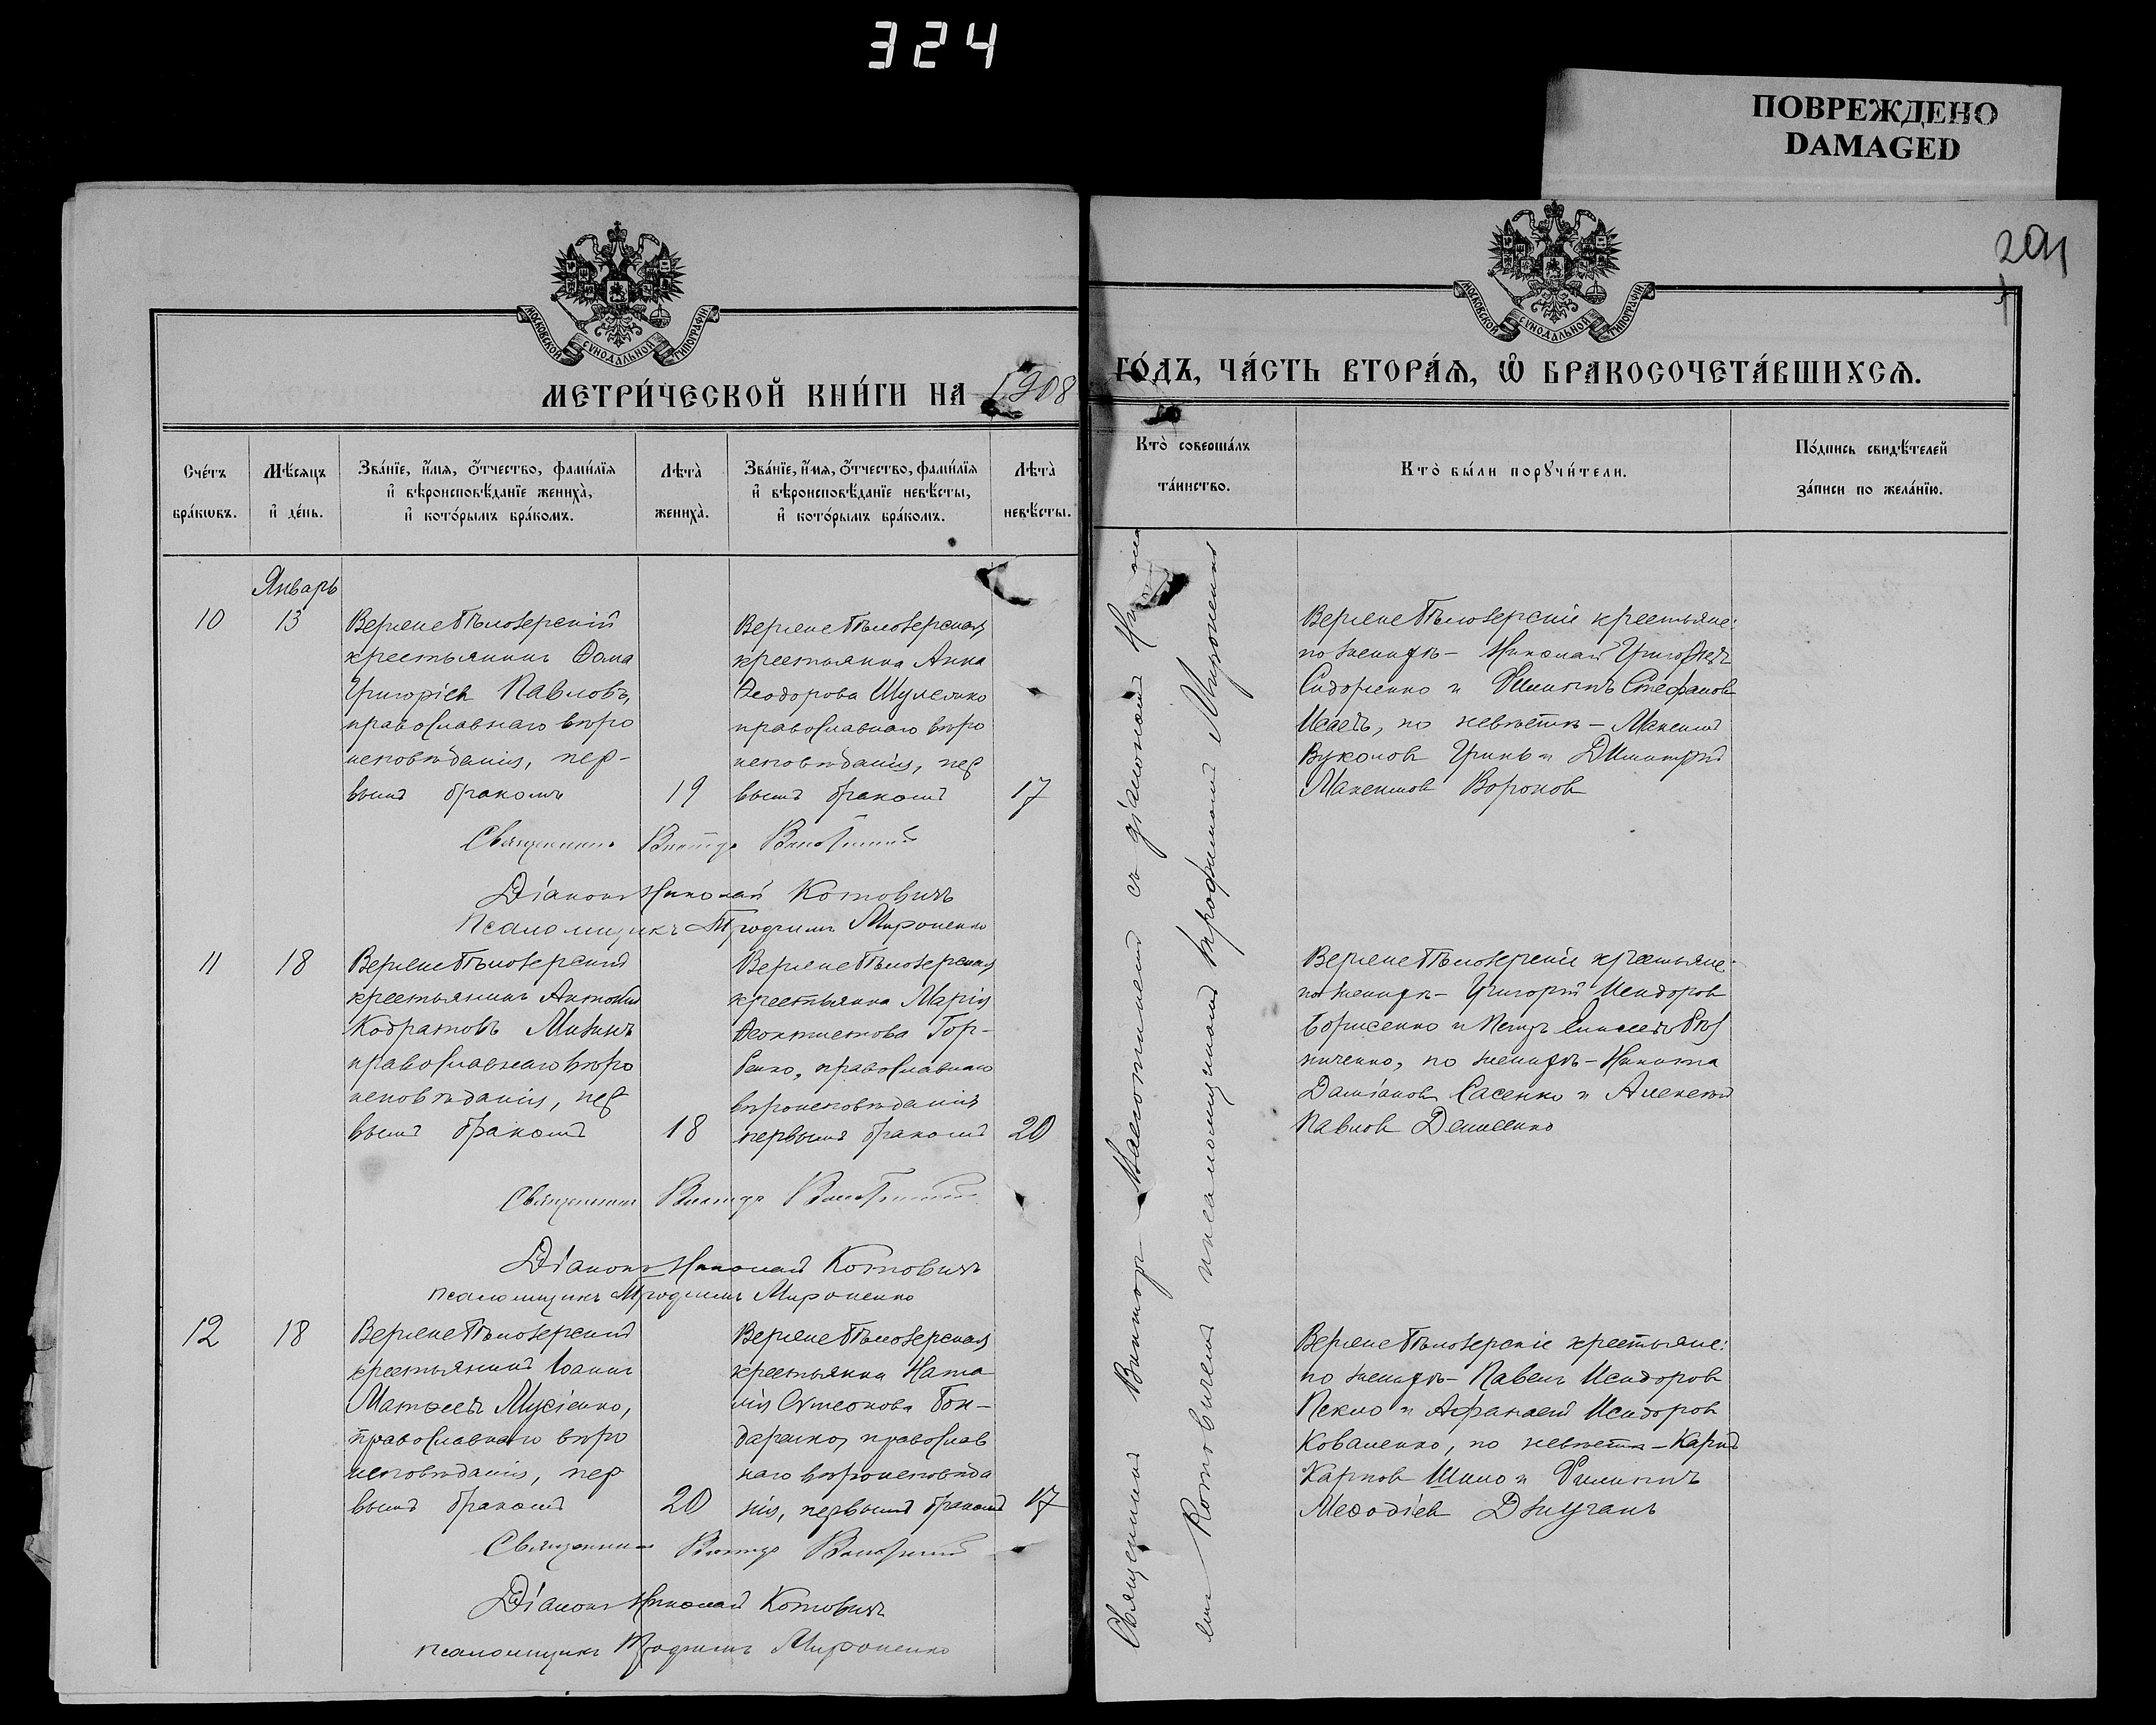 324
ПОВРЕЖДЕНО
DAMAGED
201
МОСКОВСКОЙ СѴНОДАЛЬНОЙ ТИПОГРАФІИ
МОСКОВСКОЙ СѴНОДАЛЬНОЙ ТИПОГРАФІИ
МЕТРИ́ЧЕСКОЙ КНИ́ГИ НА 1908
ГО́ДЪ, ЧА́СТЬ ВТОРА́Я, Ѽ БРАКОСОЧЕТА́ВШИХСЯ.
Сче́тъ
бра́кѡвъ.
Мѣ́сяцъ
и҆ де́нь.
Зва́нїе, и҆́мя, ѻ҆́тчество, фами́лїя
и҆ вѣроисповѣ́данїе жениха̀,
и҆ кото́рымъ бра́комъ.
Лѣта̀
жениха̀.
Зва́нїе, и҆́мя, ѻ҆́тчество, фами́лїя
и҆ вѣроисповѣ́данїе невѣ́сты,
и҆ кото́рымъ бра́комъ.
Лѣта̀
невѣ́сты.
Кто̀ соверша́лъ
та́инство.
Кто̀ бы́ли порꙋчи́тели.
По́дпись свидѣ́телей
за́писи по жела́нїю.
Январь
10
13
Верхнебѣлозерскій
крестьянинъ Ѳома
Григоріев Павловъ,
православнаго вѣро
исповѣданія, пер-
вымъ бракомъ
19
Верхнебѣлозерская
крестьянка Анна
Ѳеодорова Шулежко
православнаго вѣро
исповѣданія, пер
вымъ бракомъ
17
Верхнебѣлозерскіе крестьяне:
по женихѣ – Николай Григорьевъ
Сидоренко и Филиппъ Стефановъ
Исаевъ, по невѣстѣ – Максимъ
Вуколов Гринь и Димитрій
Максимов Воронов
Священникъ Викторъ
Діаконъ Николай Котовичъ
Псаломщикъ Трофимъ Мироненко
11
18
Верхнебѣлозерскій
крестьянинъ Антоній
Кодратовъ Мизинъ
православнаго вѣро
исповѣданія, пер
вымъ бракомъ
18
Верхнебѣлозерская
крестьянка Марія
Ѳеоктистова Гор-
бенко, православнаго
вѣроисповѣданія
первымъ бракомъ
20
Верхнебѣлозерскіе крестьяне:
по женихѣ – Григорій Исидоров
Борисенко и Петръ
ниченко, по женихѣ – Никита
Даміанов Сасенко и Алексѣй
Павлов Денисенко
Священникъ Викторъ
Діаконъ Николай Котовичъ
псаломщикъ Трофимъ Мироненко
12
18
Верхнебѣлозерскій
крестьянинъ Іоаннъ
Матѳеевъ Мусіенко,
православнаго вѣро
исповѣданія, пер
вымъ бракомъ
20
Верхнебѣлозерская
крестьянка Ната
лія Сѵмеонова Бон-
даренко, православ
наго вѣроисповѣда
нія, первымъ бракомъ
17
Верхнебѣлозерскіе крестьяне:
по женихѣ – Павелъ Исидоров
Пекло и Аѳанасій Исидоров
Коваленко, по невѣстѣ – Карпъ
Карпов Шило и Филиппъ
Меѳодіев Джуганъ
Священникъ Викторъ
Діаконъ Николай Котовичъ
псаломщикъ Трофимъ Мироненко
Священникъ Викторъ съ діакономъ
Котовичемъ и псаломщикомъ Трофимомъ Мироненко